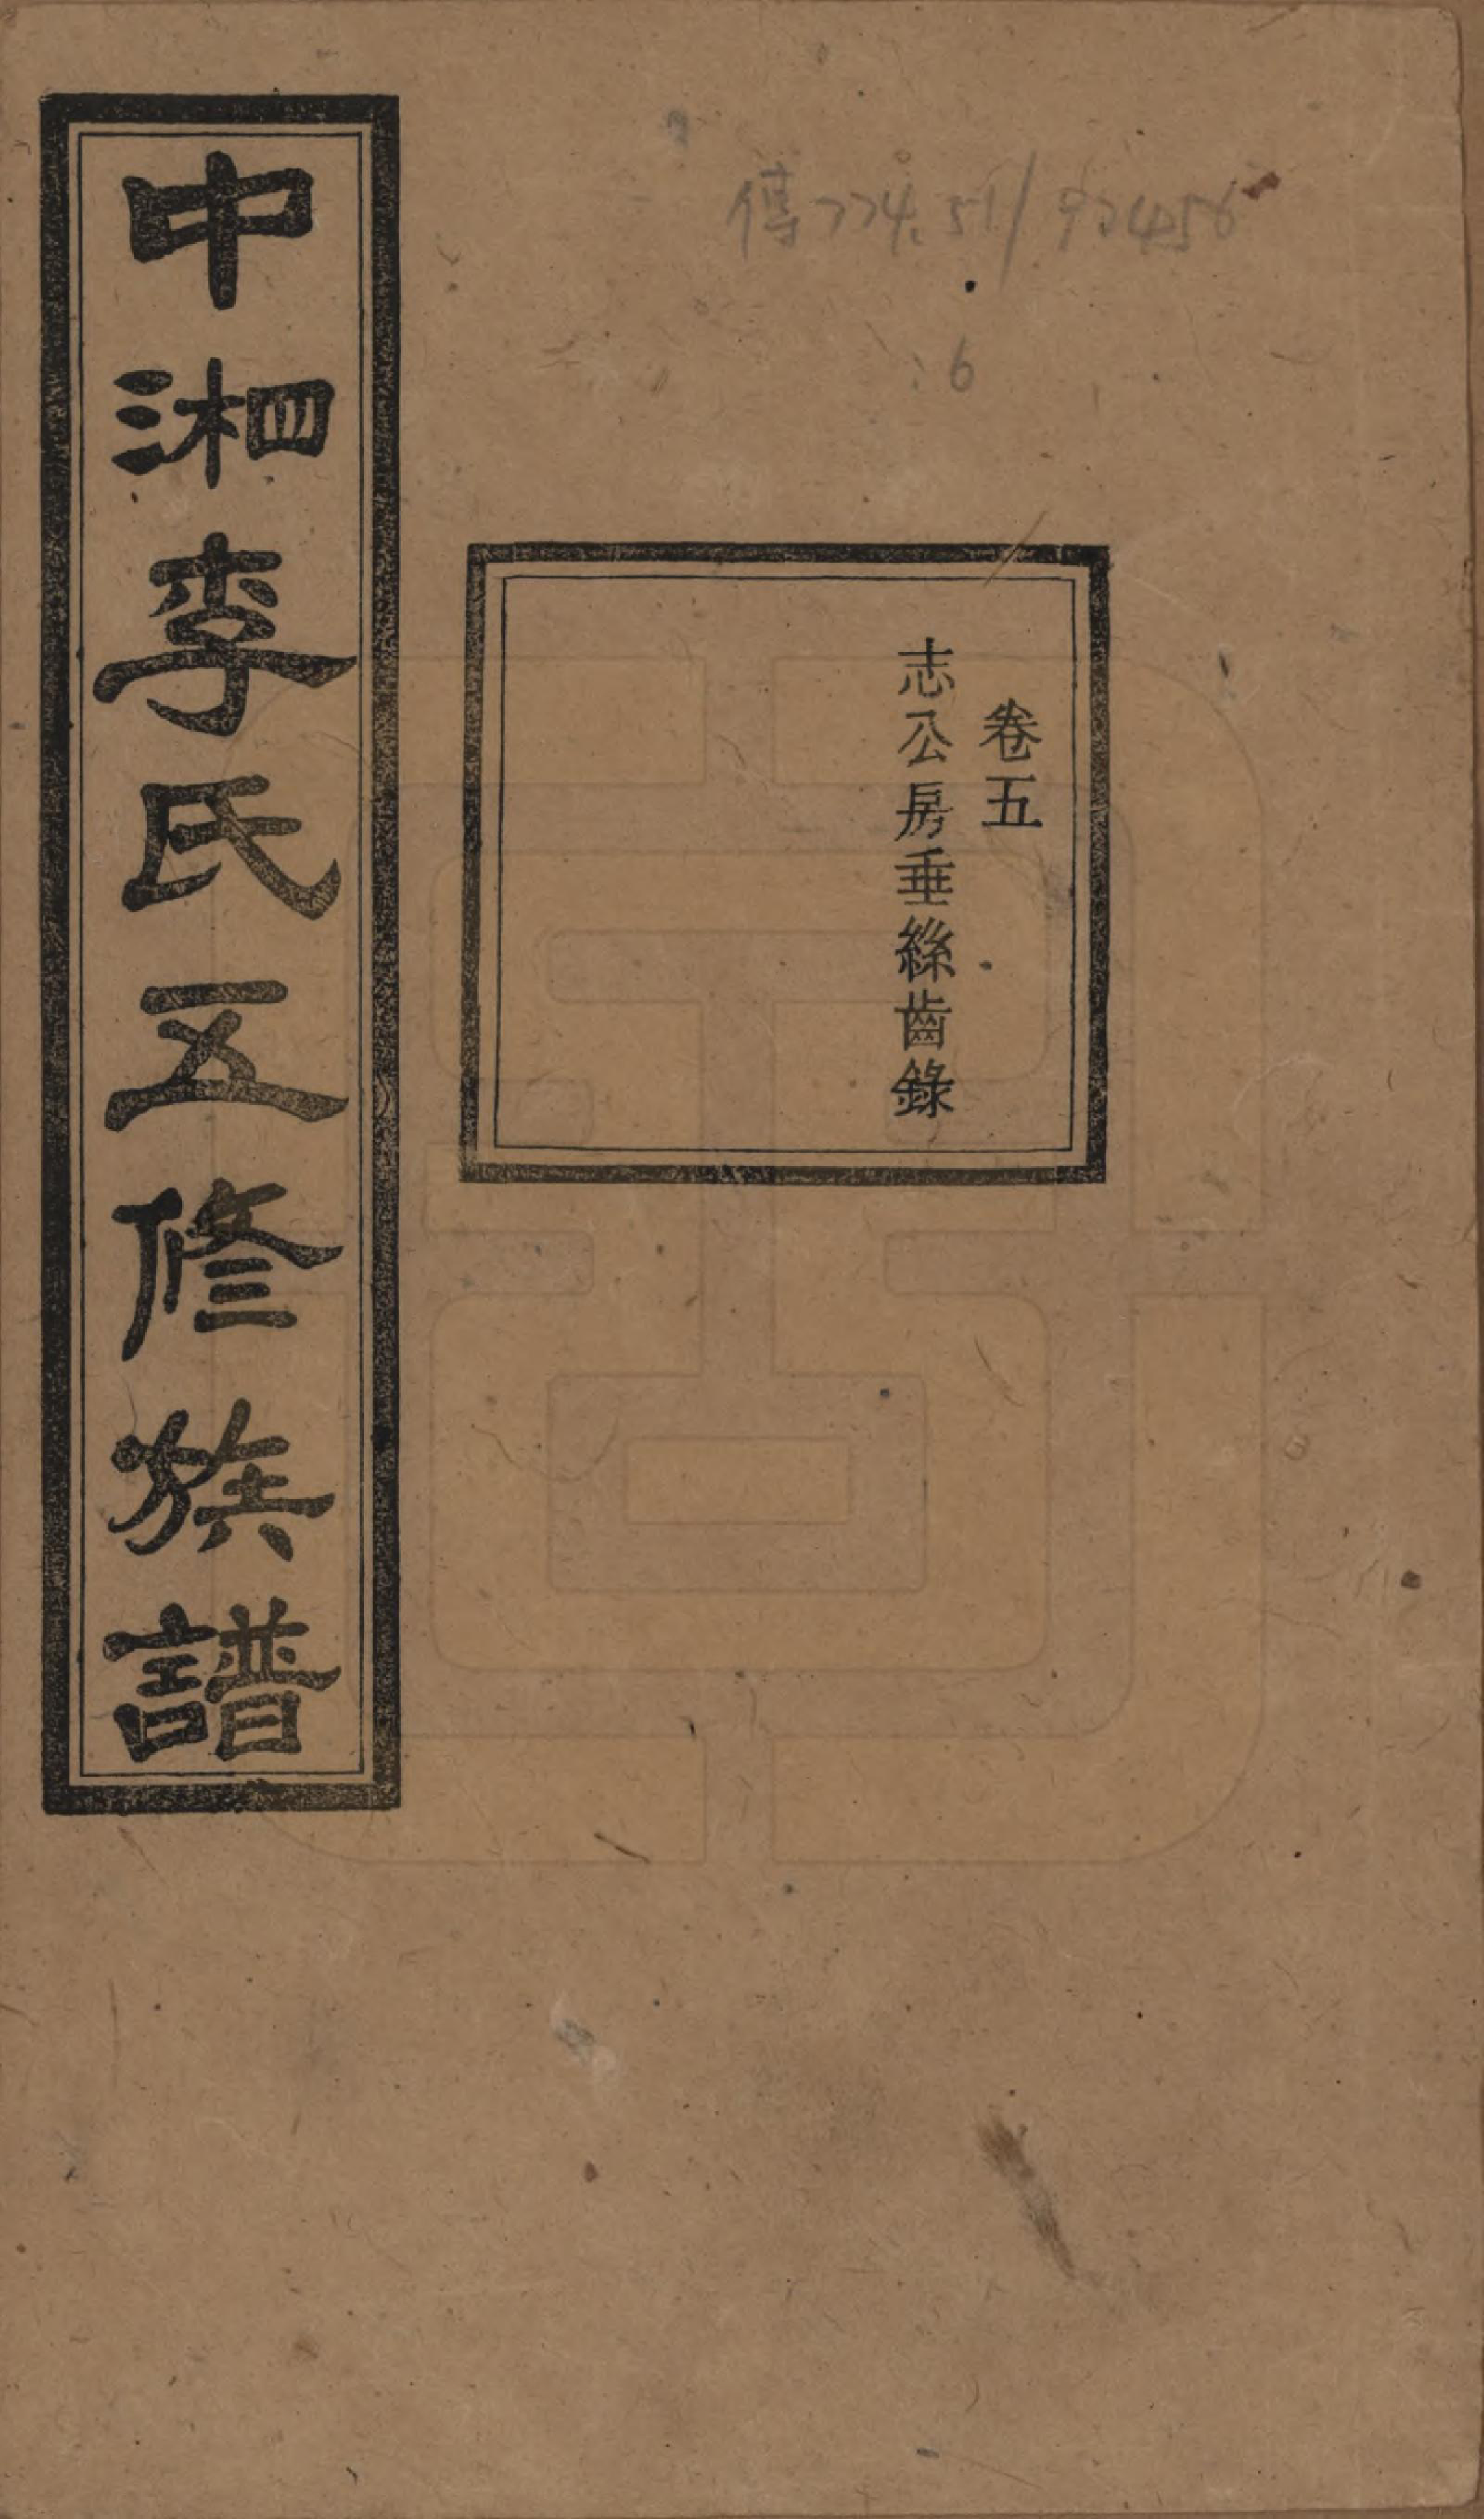 傳774.51/97456
:6
卷五
志公房垂絲齒錄
中湘李氏五修族譜